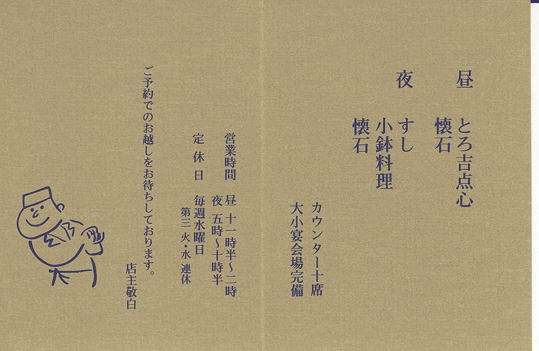 昼 とろ吉点心
懐石
夜 すし
小鉢料理
懐石
カウンター十席
大小宴会場完備
営業時間 昼 十一時半〜二時
夜 五時〜十時半
定休日 毎週水曜日
第三 火・水 連休
ご予約でのお越しをお待ちしております。
店主敬白